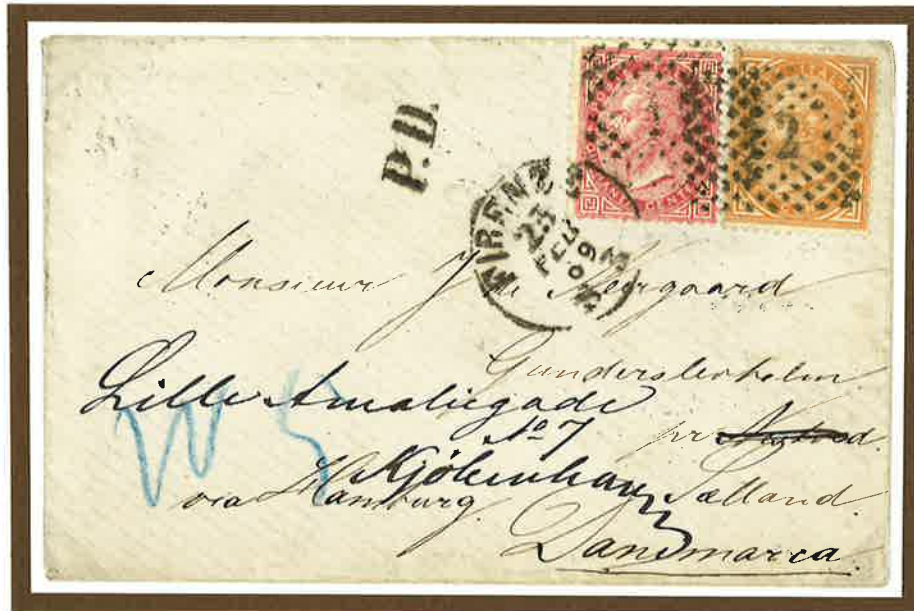 P.D.
FIRENZE
23
FEB
69
2
Monsieur J de Neergaard
Gunderslevholm
Lille Amaliegade
No 7
pr Næstved
Kjöbenhavn
via Hamburg. Sælland.
Danimarca